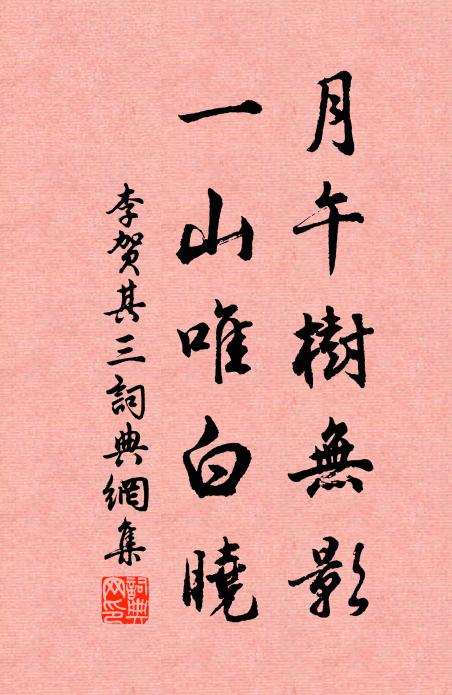 月午樹無影
一山唯白曉
李賀其三詞典網集
詞典
网印